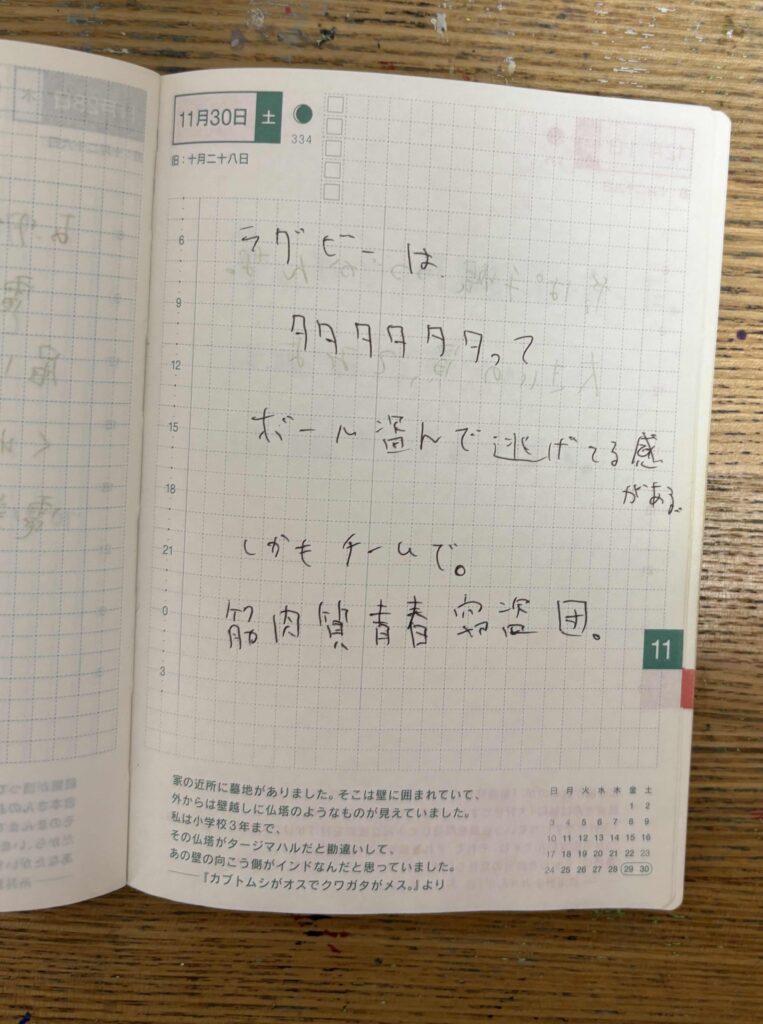 11月30日 土
334
旧：十月二十八日
6
9
12
15
18
21
0
3
ラグビーは、
タタタタタタって
ボール盗んで逃げてる感
がある。
しかもチームで。
筋肉質青春窃盗団。
11
家の近所に墓地がありました。そこは壁に囲まれていて、
外からは壁越しに仏塔のようなものが見えていました。
私は小学校3年まで、
その仏塔がタージマハルだと勘違いして、
あの壁の向こう側がインドなんだと思っていました。
――『カブトムシがオスでクワガタがメス。』より
日 月 火 水 木 金 土
1 2
3 4 5 6 7 8 9
10 11 12 13 14 15 16
17 18 19 20 21 22 23
24 25 26 27 28 29 30